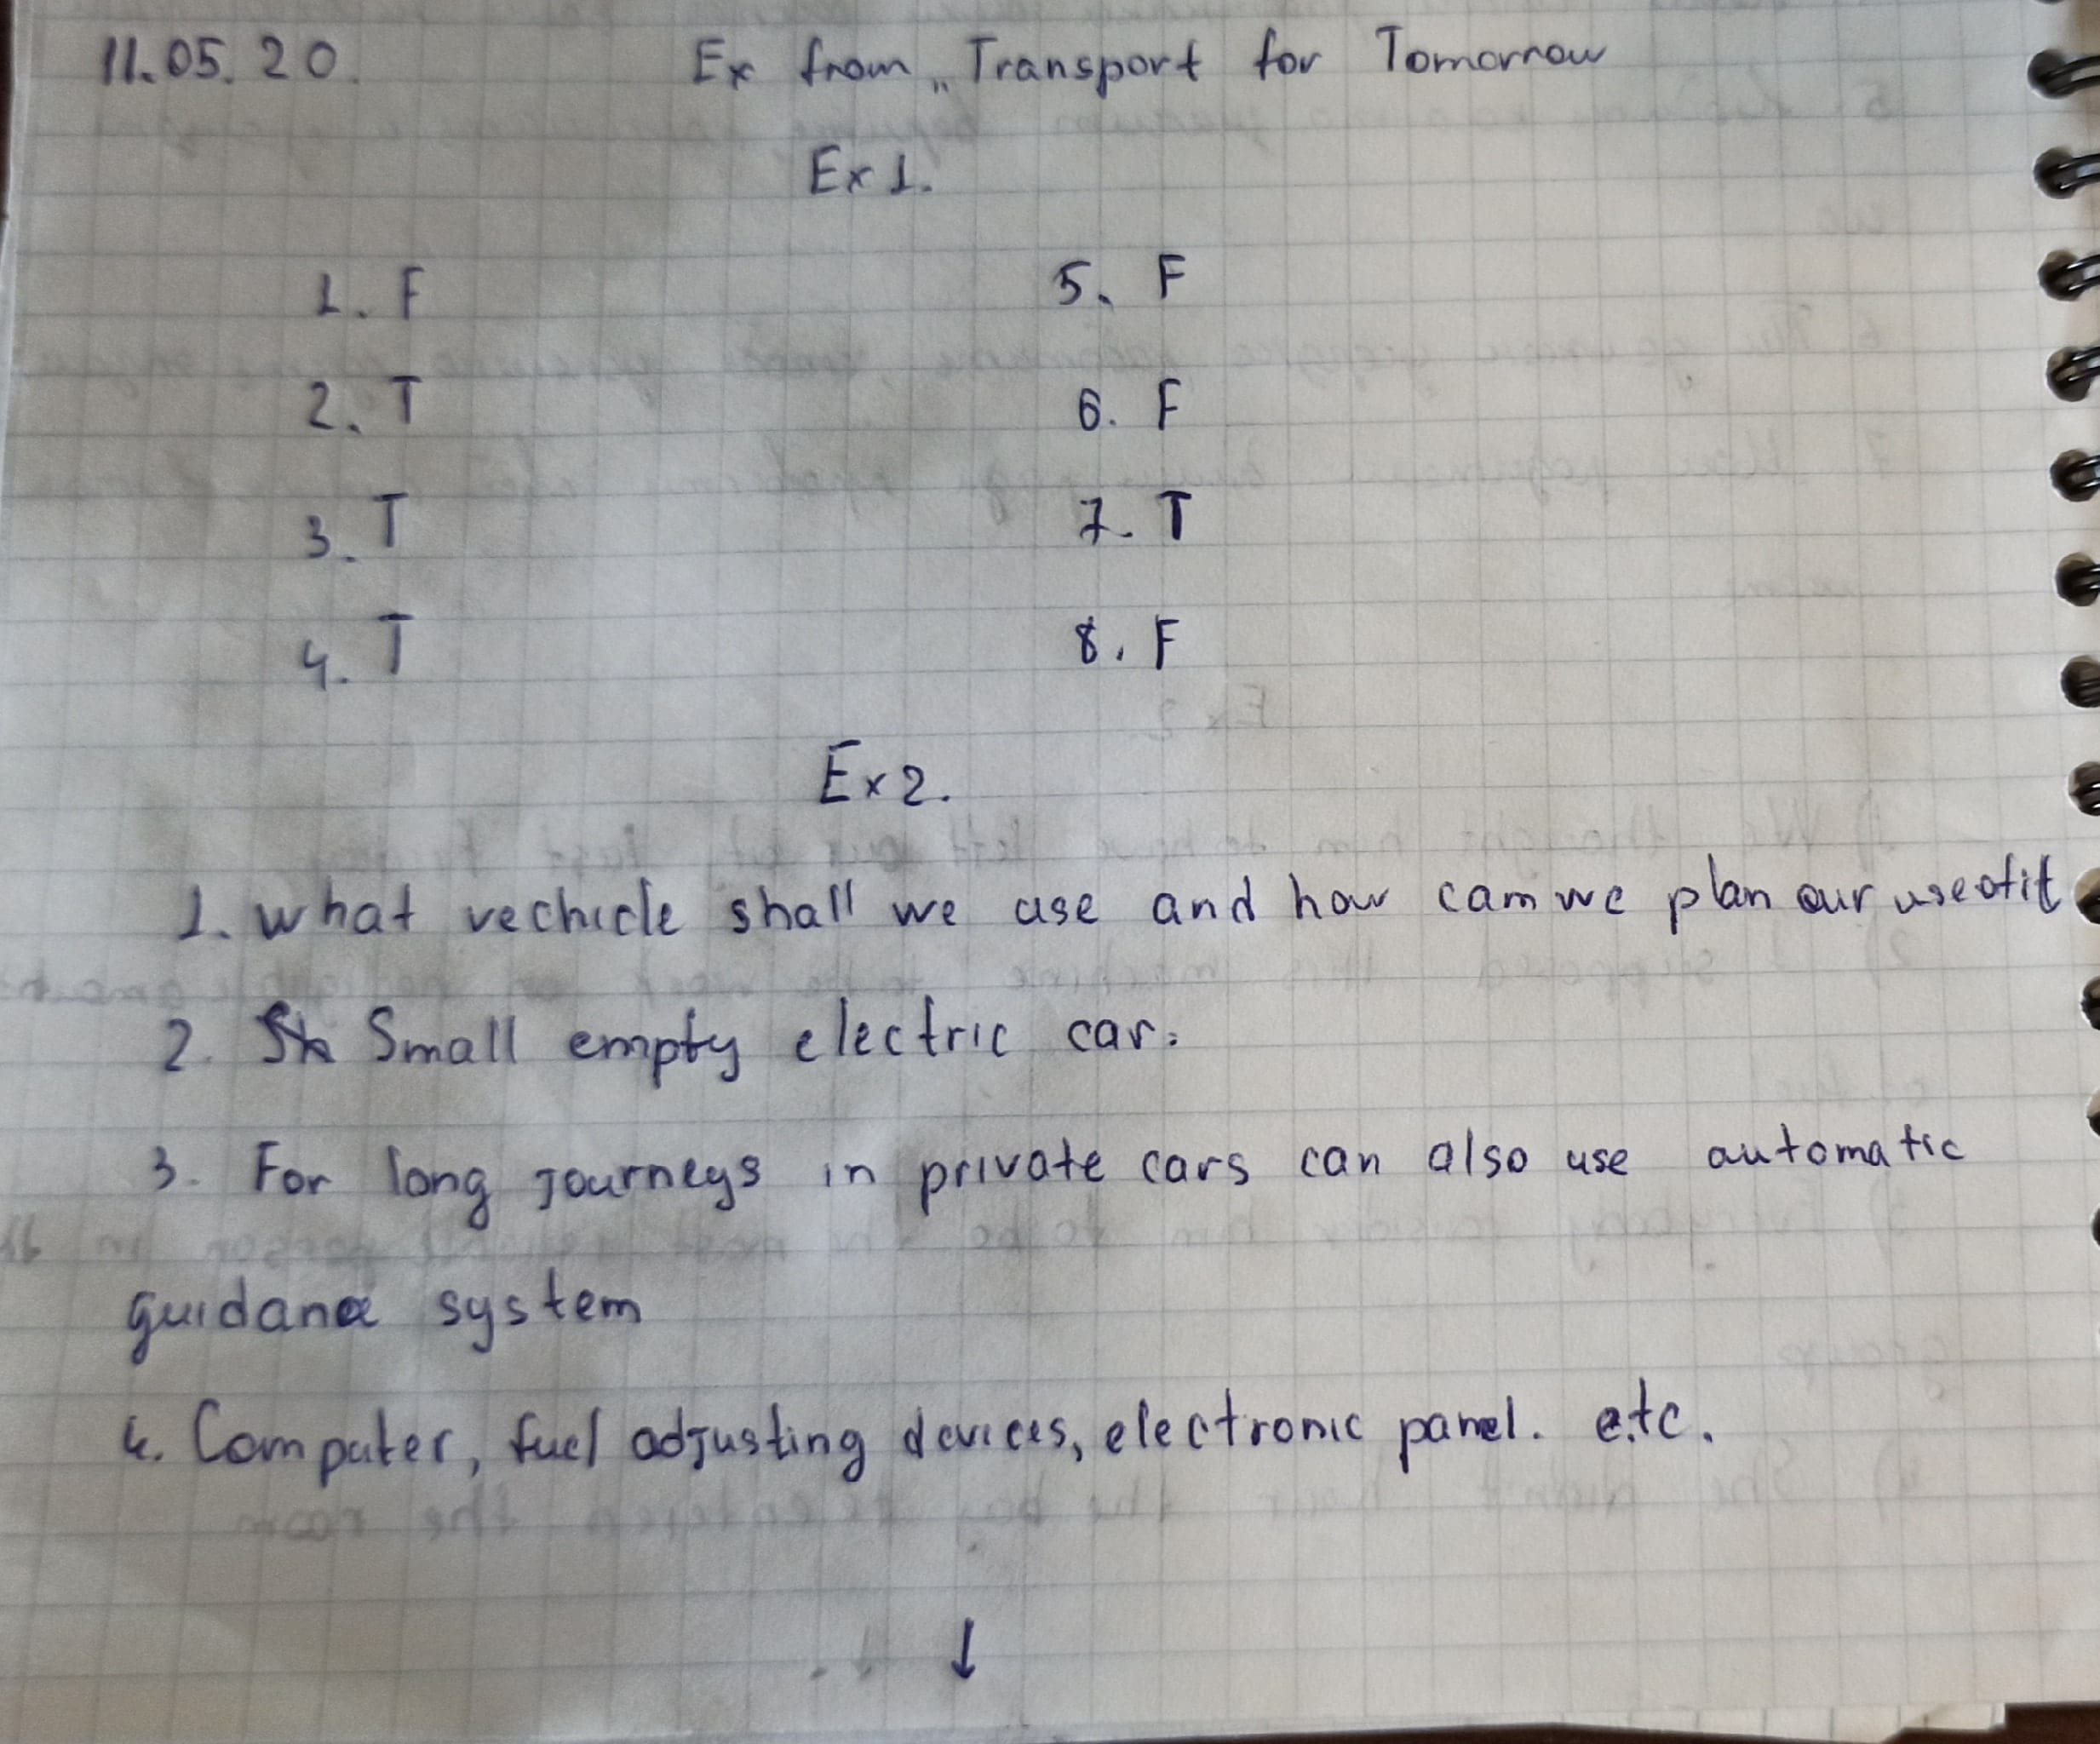 11.05.20. Ex from „Transport for Tomorrow
Ex 1.
1. F 5. F
2. T 6. F
3. T 7. T
4. T 8. F
Ex 2.
1. what vechicle shall we use and how cam we plan our use of it
2. Small empty electric car.
3. For long journeys in private cars can also use automatic
guidance system
4. Computer, fuel adjusting devices, electronic panel. e.t.c.
↓